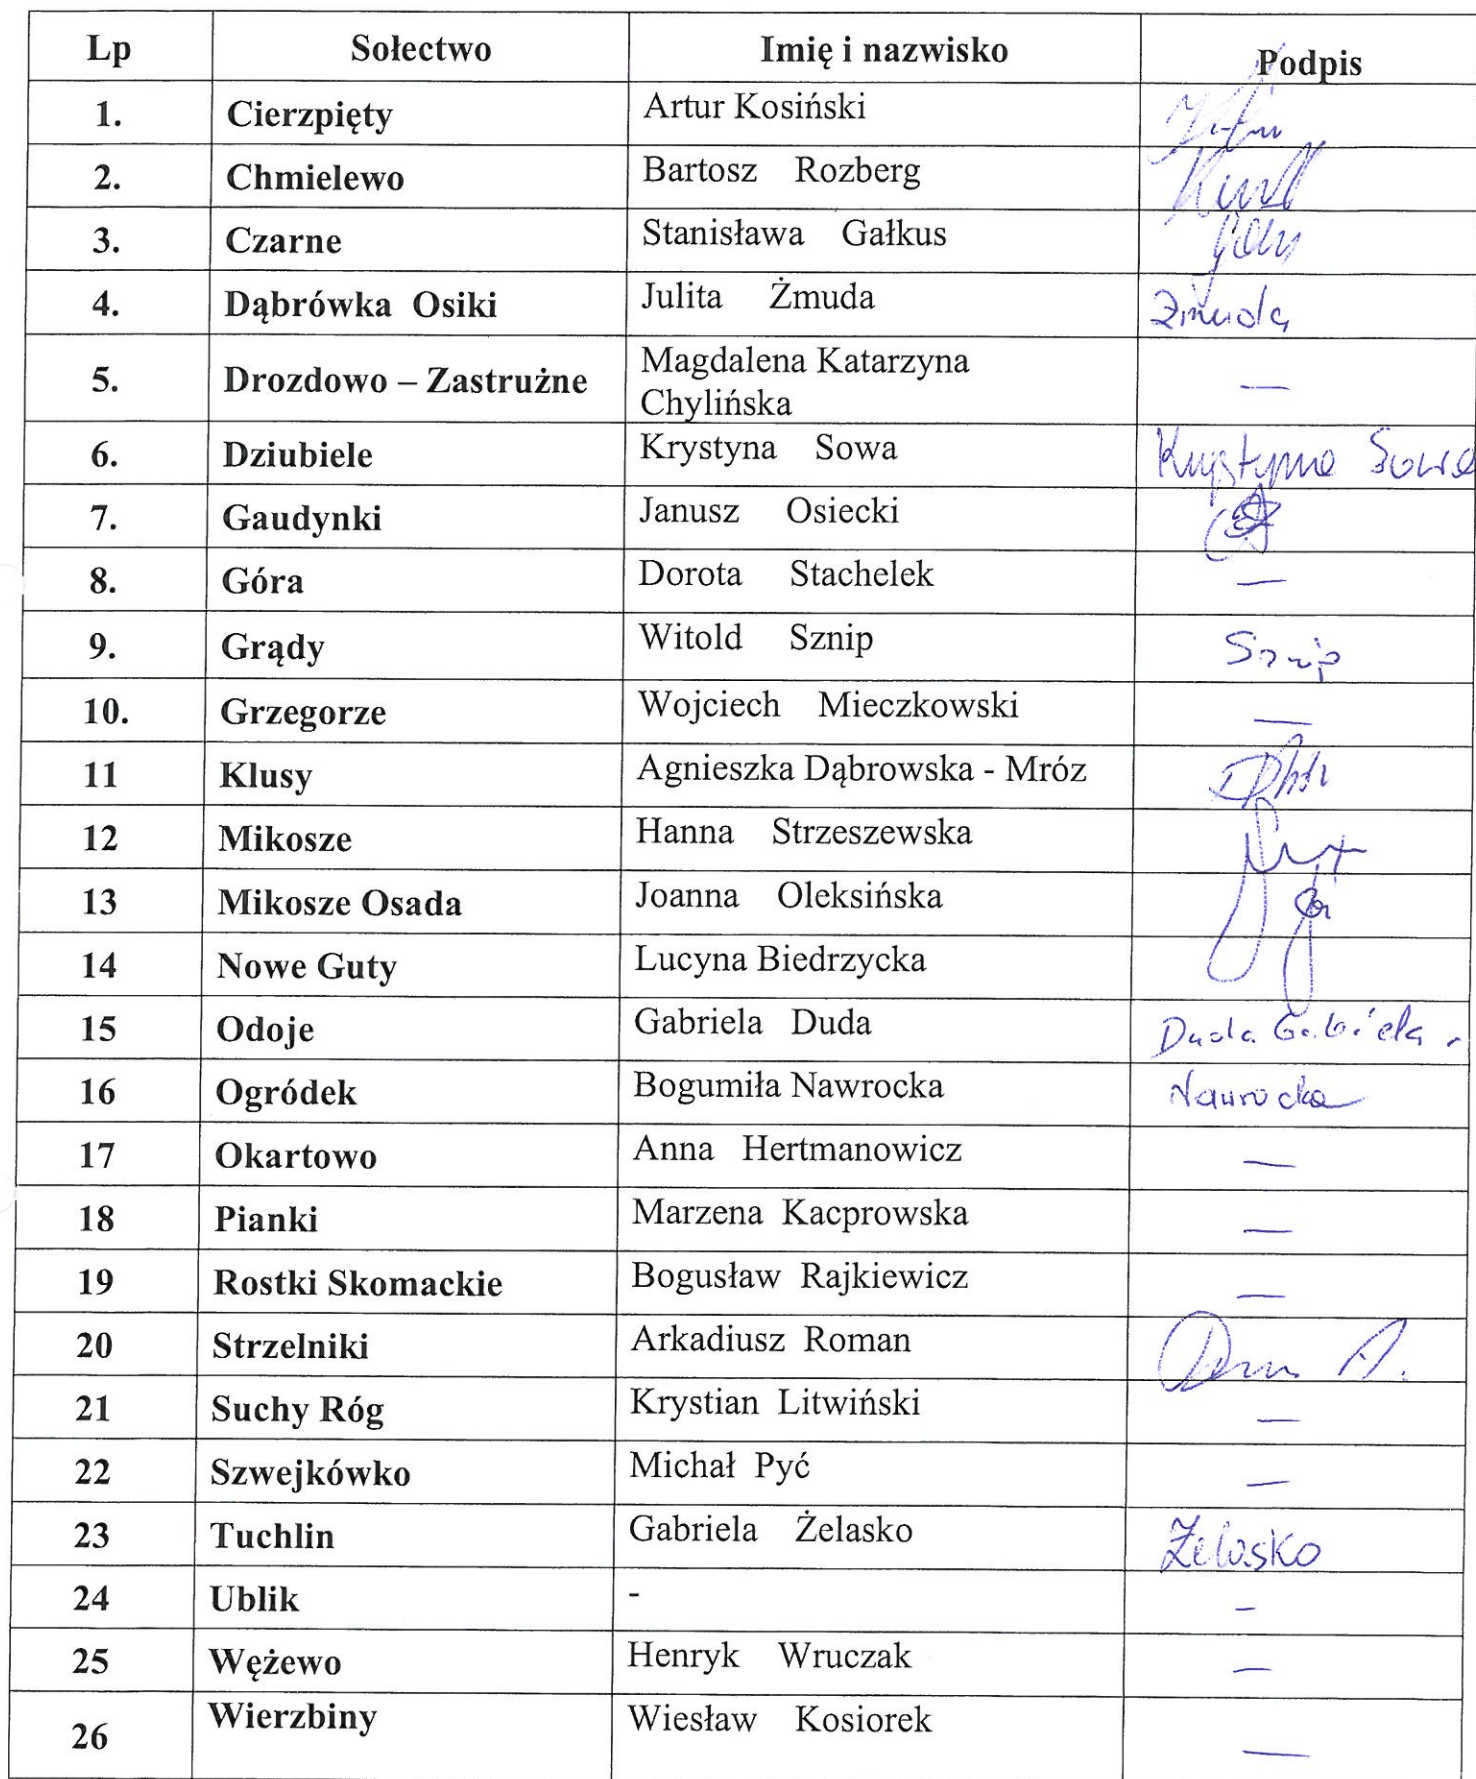 Lp Sołectwo Imię i nazwisko Podpis
1. Cierzpięty Artur Kosiński
2. Chmielewo Bartosz Rozberg
3. Czarne Stanisława Gałkus
4. Dąbrówka Osiki Julita Żmuda Żmuda
5. Drozdowo – Zastrużne Magdalena Katarzyna
Chylińska —
6. Dziubiele Krystyna Sowa Krystyna Sowa
7. Gaudynki Janusz Osiecki
8. Góra Dorota Stachelek —
9. Grądy Witold Sznip Sznip
10. Grzegorze Wojciech Mieczkowski —
11 Klusy Agnieszka Dąbrowska - Mróz
12 Mikosze Hanna Strzeszewska
13 Mikosze Osada Joanna Oleksińska
14 Nowe Guty Lucyna Biedrzycka
15 Odoje Gabriela Duda Duda Gabriela
16 Ogródek Bogumiła Nawrocka Nawrocka
17 Okartowo Anna Hertmanowicz —
18 Pianki Marzena Kacprowska —
19 Rostki Skomackie Bogusław Rajkiewicz —
20 Strzelniki Arkadiusz Roman
21 Suchy Róg Krystian Litwiński —
22 Szwejkówko Michał Pyć —
23 Tuchlin Gabriela Żelasko Żelasko
24 Ublik - –
25 Wężewo Henryk Wruczak —
26 Wierzbiny Wiesław Kosiorek —